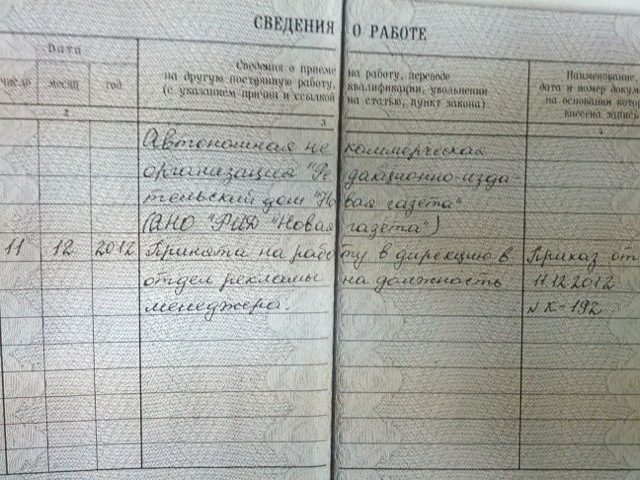 СВЕДЕНИЯ О РАБОТЕ
Дата
Сведения о приеме на работу, переводе
на другую постоянную работу, квалификации, увольнении
(с указанием причин и ссылкой на статью, пункт закона)
Наименование
дата и номер
на основании
внесена запись
число
месяц
год
2
3
4
Автономная некоммерческая
организация "Редакционно-изда-
тельский дом "Новая газета"
(АНО "РИД "Новая газета")
11 12 2012 Принята на работу в дирекцию в Приказ от
отдел рекламы на должность 11.12.2012
менеджера. № К-192